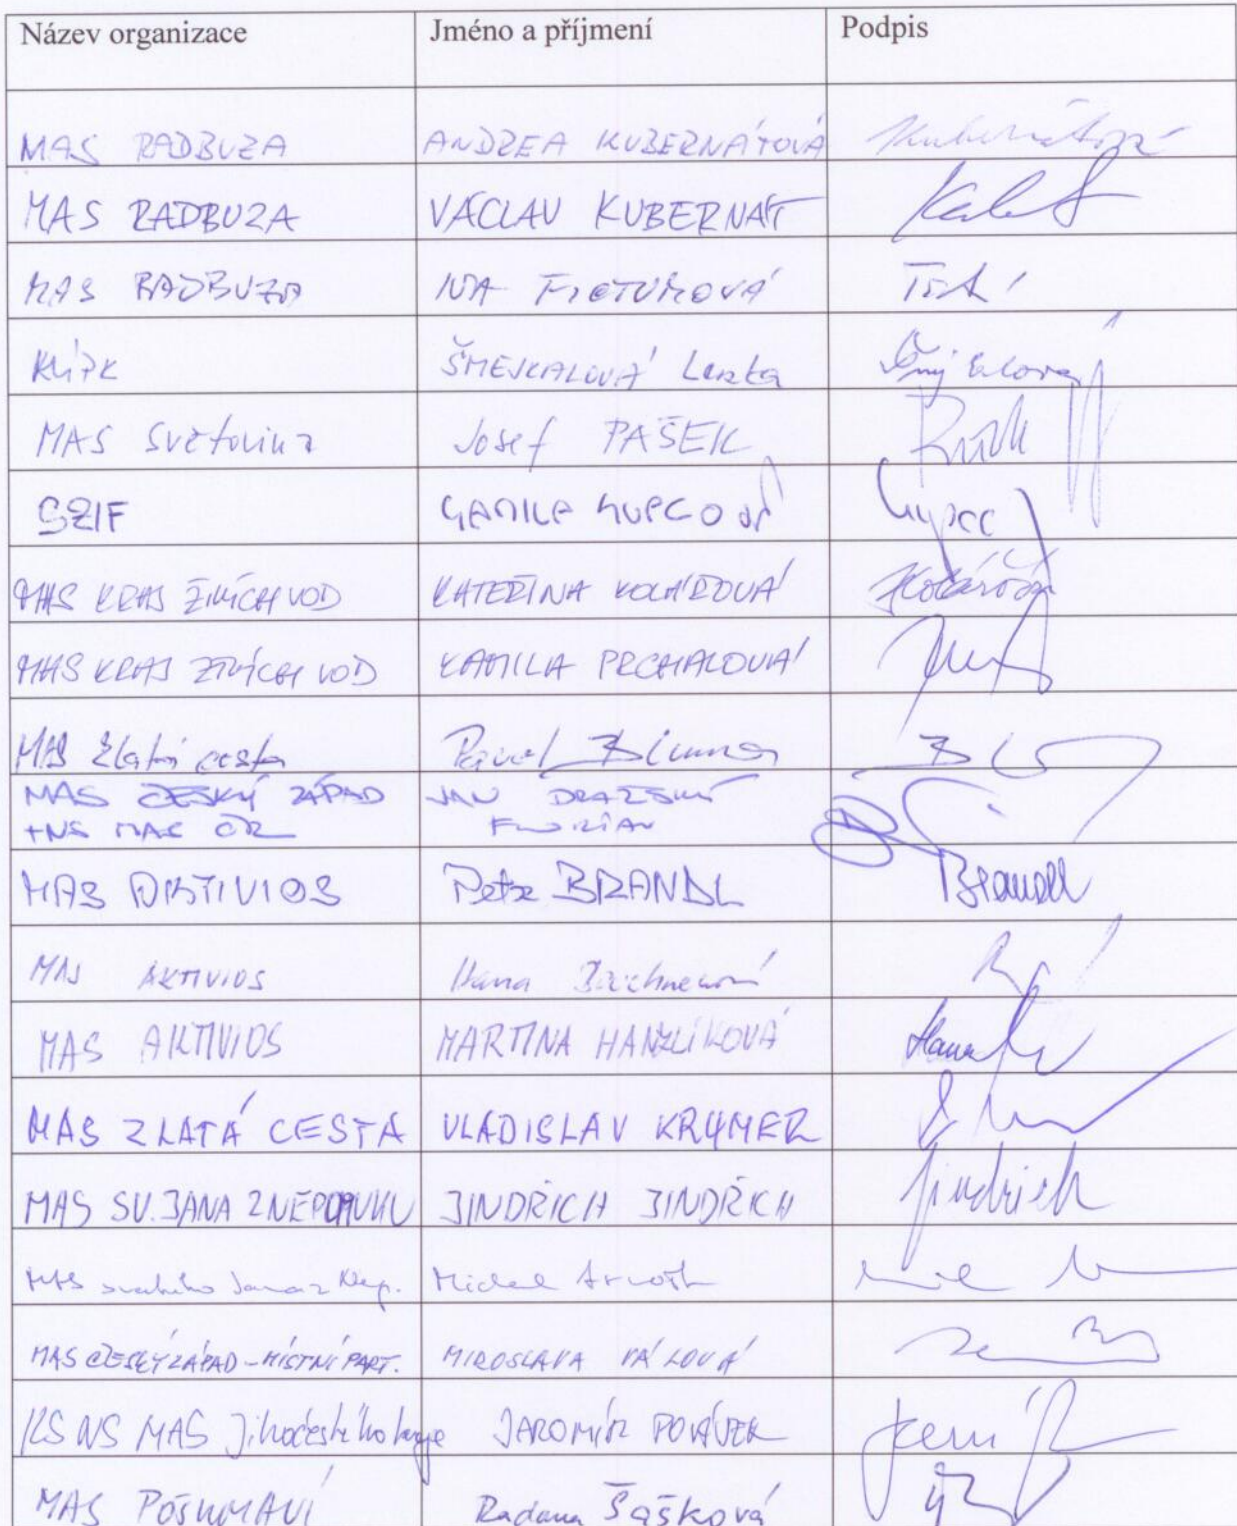 Název organizace Jméno a příjmení Podpis
MAS RADBUZA ANDREA KUBERNÁTOVÁ Kubernátová
MAS RADBUZA VÁCLAV KUBERNÁT
MAS RADBUZA IVA
ŠMEJKALOVÁ Lenka
MAS Světovina Josef PAŠEK
SZIF
MAS KRAJ ŽIVÝCH VOD KATEŘINA KOLÁŘOVÁ Kolářová
MAS KRAJ ŽIVÝCH VOD KAMILA PRCHALOVÁ
MAS Zlatá cesta Pavel
MAS ČESKÝ ZÁPAD JAN DRAŽSKÝ
+ NS MAS ČR FLORIAN
MAS AKTIVIOS Petr BRANDL Brandl
MAS AKTIVIOS Hana
MAS AKTIVIOS MARTINA HANZLÍKOVÁ
MAS ZLATÁ CESTA VLADISLAV KRYMER
MAS SV. JANA Z NEPOMUKU JINDŘICH JINDŘICH Jindřich
MAS svatého Jana z Nep. Michal
MAS ČESKÝ ZÁPAD - MÍSTNÍ PART. MIROSLAVA VÁLOVÁ
KS NS MAS Jihočeského kraje JAROMÍR POLÁŠEK
MAS POŠUMAVÍ Radana Šašková